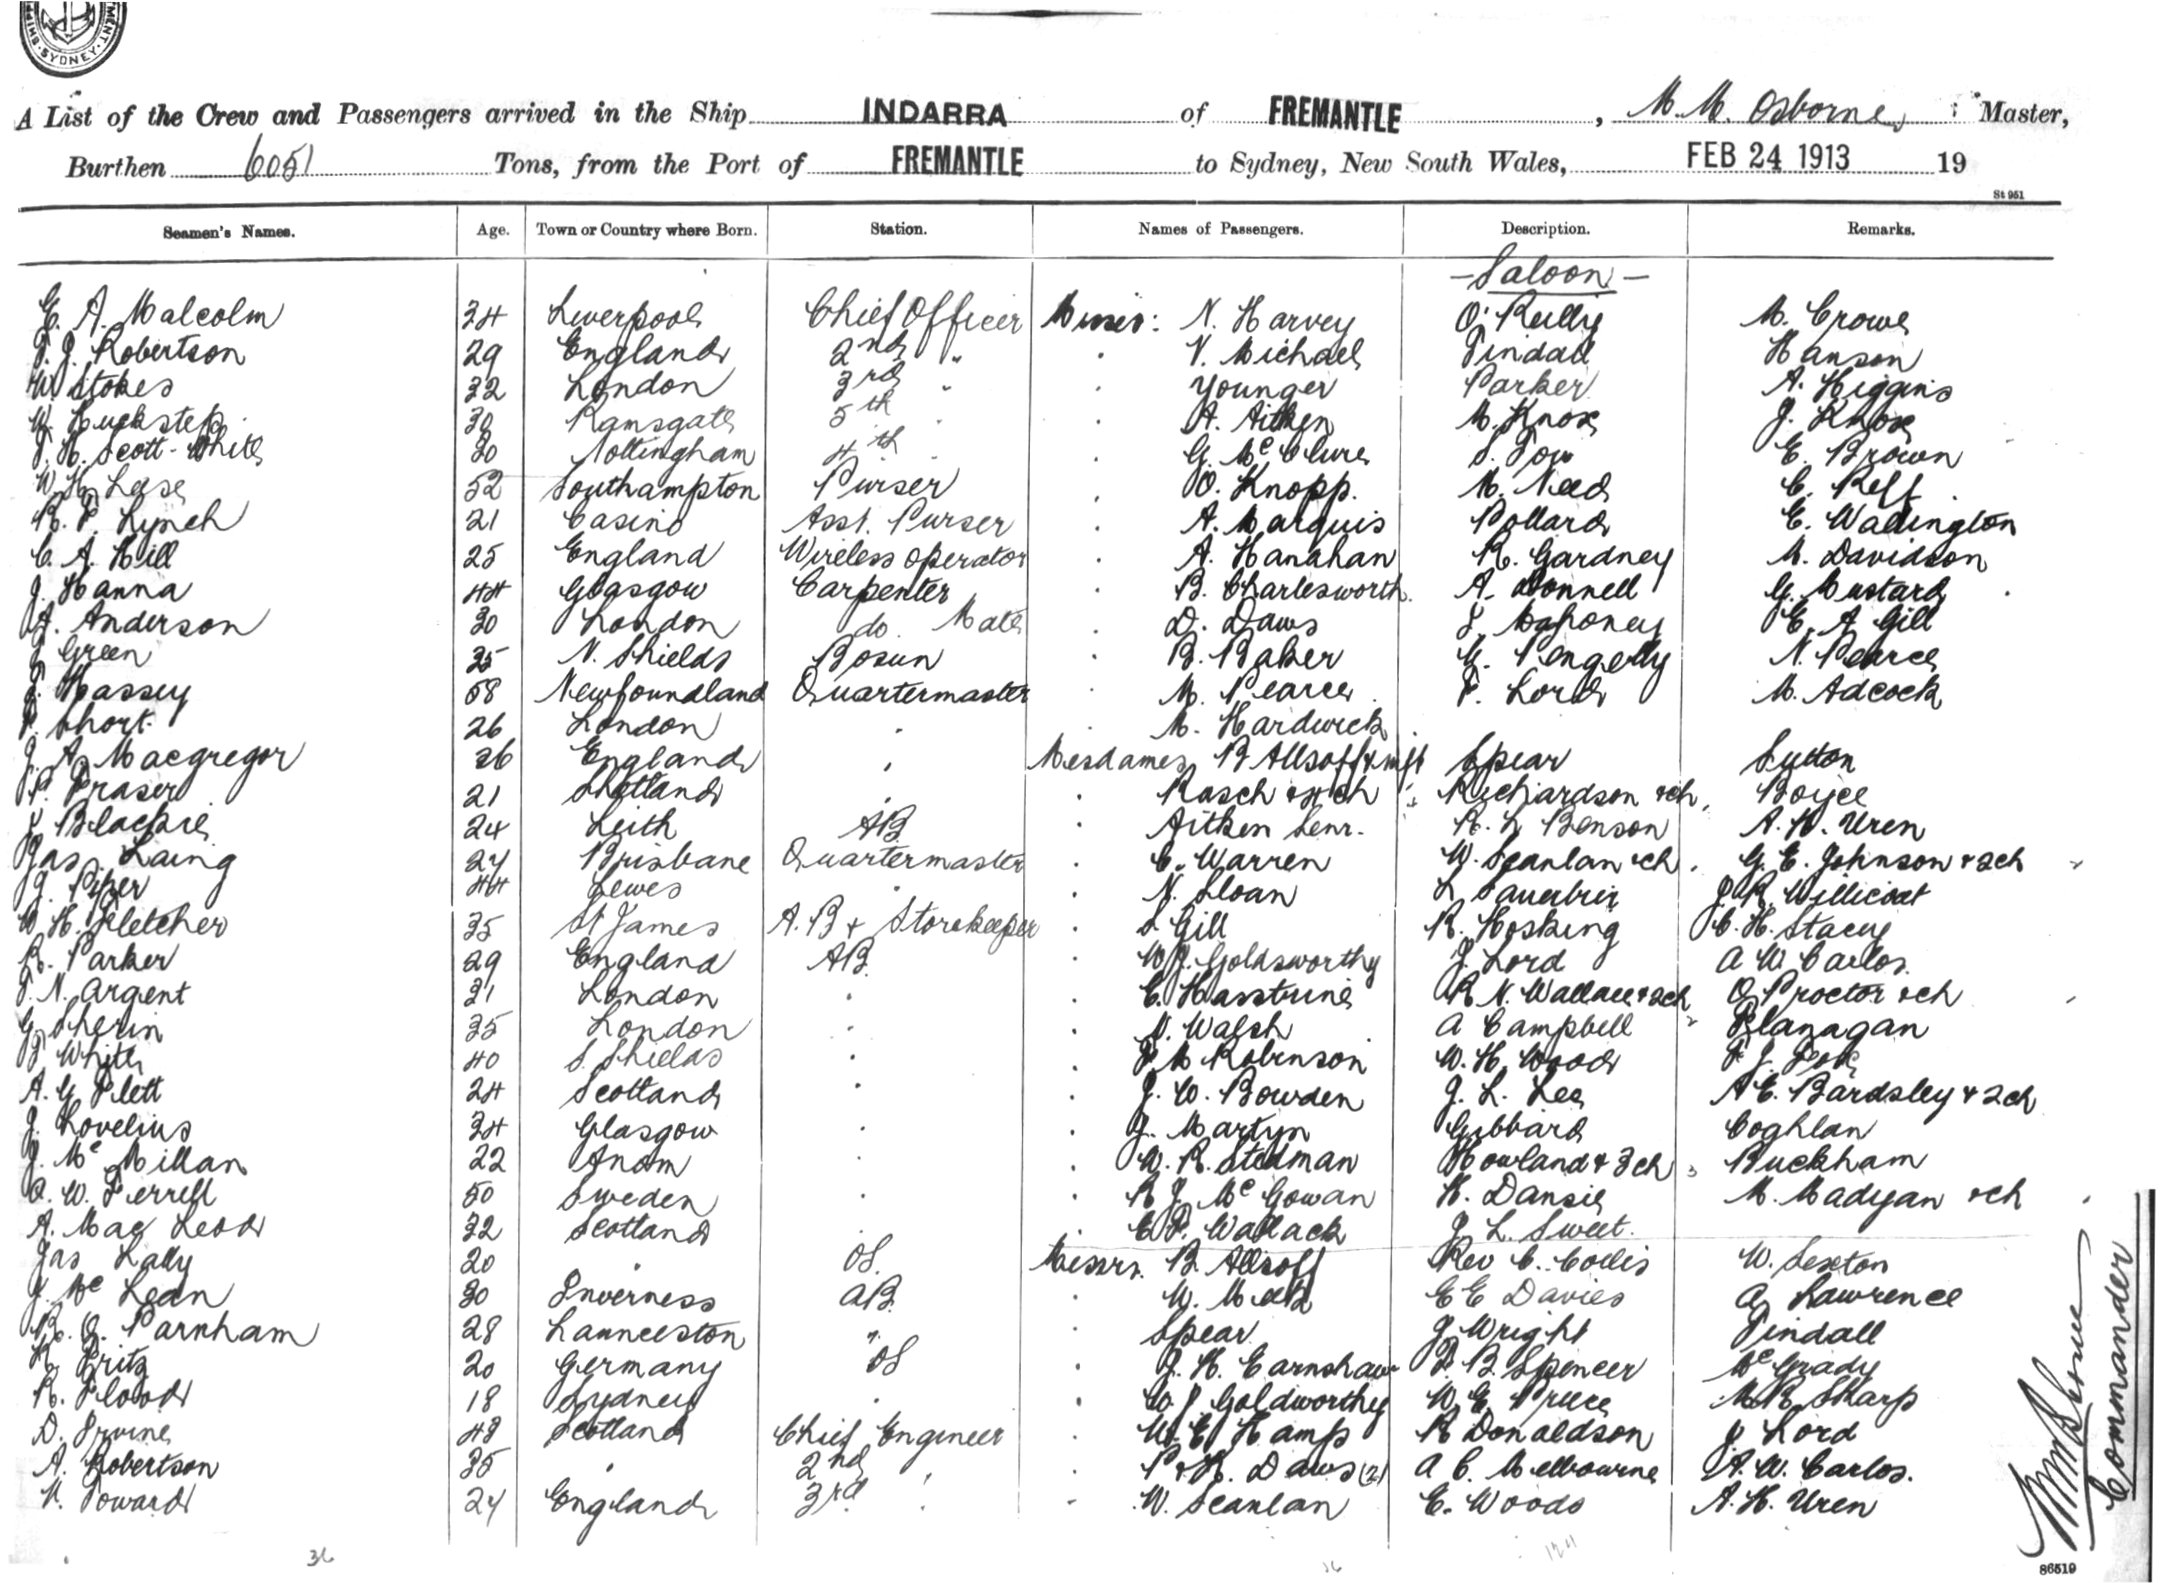 SYDNEY
A List of the Crew and Passengers arrived in the Ship INDARRA of FREMANTLE, M. M. Osborne, Master,
Burthen 6051 Tons, from the Port of FREMANTLE to Sydney, New South Wales, FEB 24 1913 19
St 951
Seamen's Names. Age. Town or Country where Born. Station. Names of Passengers. Description. Remarks.
- Saloon -
E. A. Malcolm 34 Liverpool Chief Officer Misses: N. Harvey O'Reilly M. Crowe
T. J. Robertson 29 England 2nd " V. Michael Tindall Hanson
W. Stokes 32 London 3rd " Younger Parker A. Higgins
W. Huckstep 30 Ramsgate 5th A. Aitken M. Knox J. Knox
J. H. Scott-White 30 Nottingham 4th G. McClure S. E. Brown
W. H. Lese 52 Southampton Purser O. Knopp. M. Need C. Reff
R. P. Lynch 21 Casino Asst. Purser A. Marquis Pollard E. Wallington
C. A. Hill 25 England Wireless Operator A. Hanahan R. Gardney M. Davidson
J. Hanna 44 Glasgow Carpenter B. Charlesworth. A. Donnell G. Mustard
A. Anderson 30 London do. Mate D. Daws J. Mahoney E. A. Gill
J. Green 35 N. Shields Bosun B. Baker Pengelly N. Pearce
T. Hassey 58 Newfoundland Quartermaster M. Pearce F. Lord M. Adcock
F. Short 26 London M. Hardwick
J. A. Macgregor 36 England Mesdames B Allsoff & inft Spear Sutton
P. Fraser 21 Shetland Rasch & 4 ch Richardson & ch Boyce
J. Blackie 24 Leith AB Aitken Senr. R. L Benson A. H. Uren
Jas Laing 27 Brisbane Quartermaster C. Warren W. Scanlan & ch G. E. Johnson & 2ch
J. Piper 44 Lewes N. Sloan L Sauerbrei J. R. Willicoat
W. H. Fletcher 35 St James A.B & Storekeeper S. Gill R. Hosking C. H. Stacey
R. Parker 29 England AB W. J. Goldsworthy J. Lord A W. Carlos
T. N. Argent 31 London C. Hasstrine R. N. Wallace & 2ch O Proctor & ch
G. Sherin 35 London N. Walsh A Campbell Flanagan
J. White 40 S. Shields F M Robinson W. H. Wood F. J.
A. G. Flett 24 Scotland J. W. Bowden J. L. Lee A E. Bardsley & 2ch
J. Lovelius 34 Glasgow J. Martyn Gibbard Coghlan
J. McMillan 22 W. R. Stedman Howland & 3 ch Buckham
A. W. Ferrell 50 Sweden R J. McGowan H. Dansie M. Madigan & ch
A. Mac Leod 32 Scotland E F. Wallack J. L. Sweet.
Jas Lally 20 " OS. Messrs. B. Allsoff Rev C. Collis W. Sexton
J. McLean 30 Inverness AB. W. E E Davies A Lawrence
R. O. Parnham 28 Launceston ". Spear J Wright Tindall
R. Fritz 20 Germany OS J. H. Earnshaw F. B. Spencer McGrady
R. Flood 18 Sydney W J Goldworthy W. E. Preece M R Sharp
D. Irvine 43 Scotland Chief Engineer W. E. Hamp R Donaldson J Lord
A. Robertson 35 " 2nd " P & H. Daws (2) A C. Melbourne A. W. Carlos.
W. Toward 27 England 3rd " W. Scanlan E. Woods A. H. Uren
36
Commander
86519